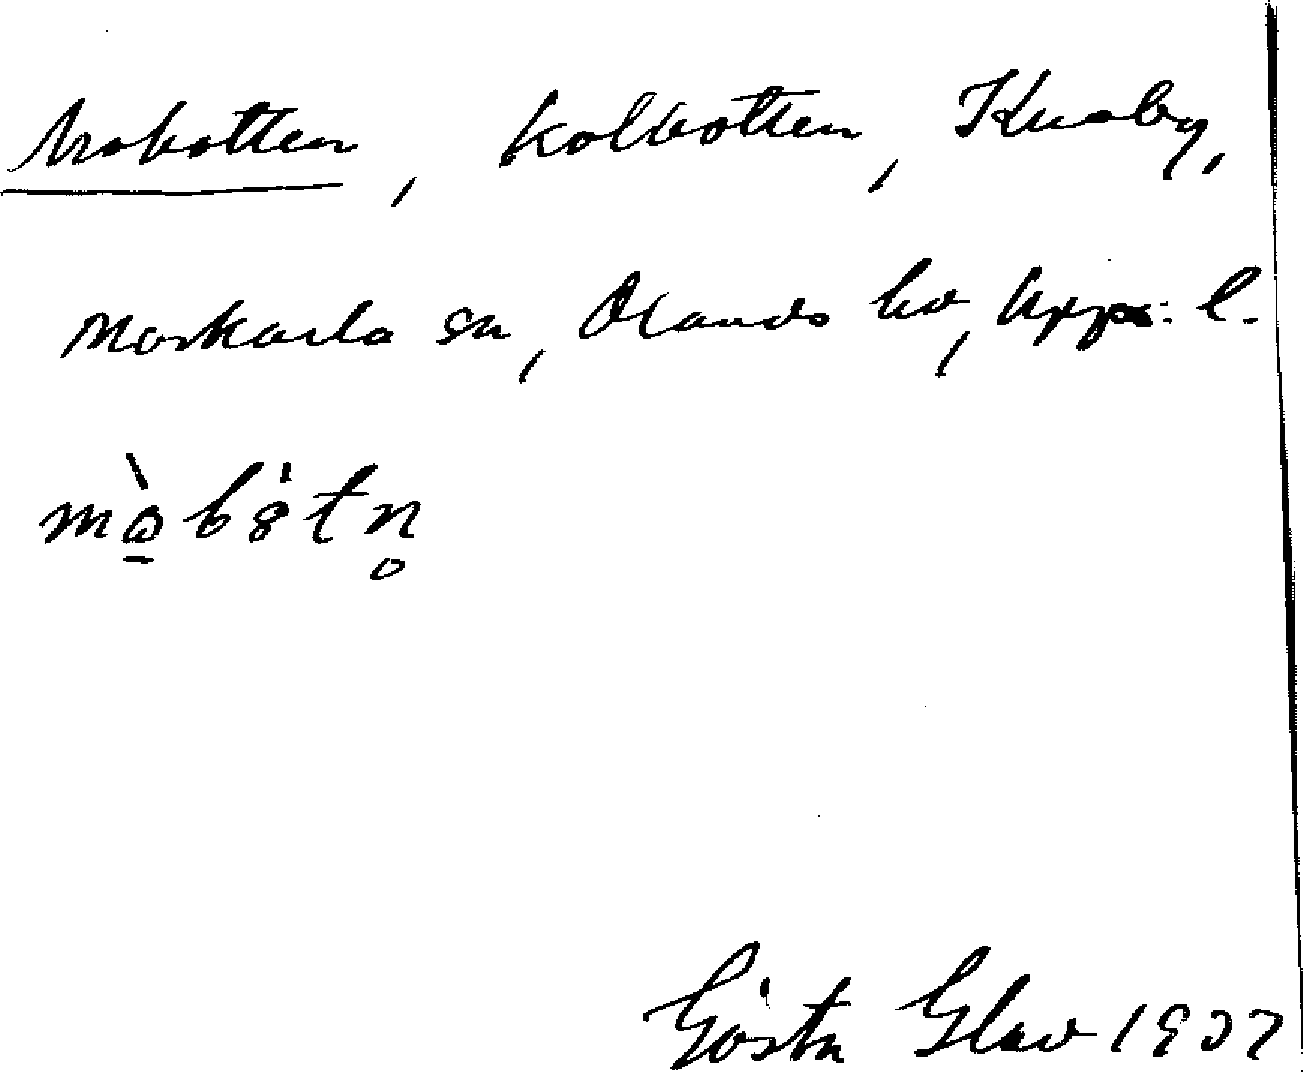 Mobotten, kolbotten, Kuaby,
Morkarla sn, Olands hd, Upps. l.
mò̱bo̍tn̥
Gösta Glav 1937